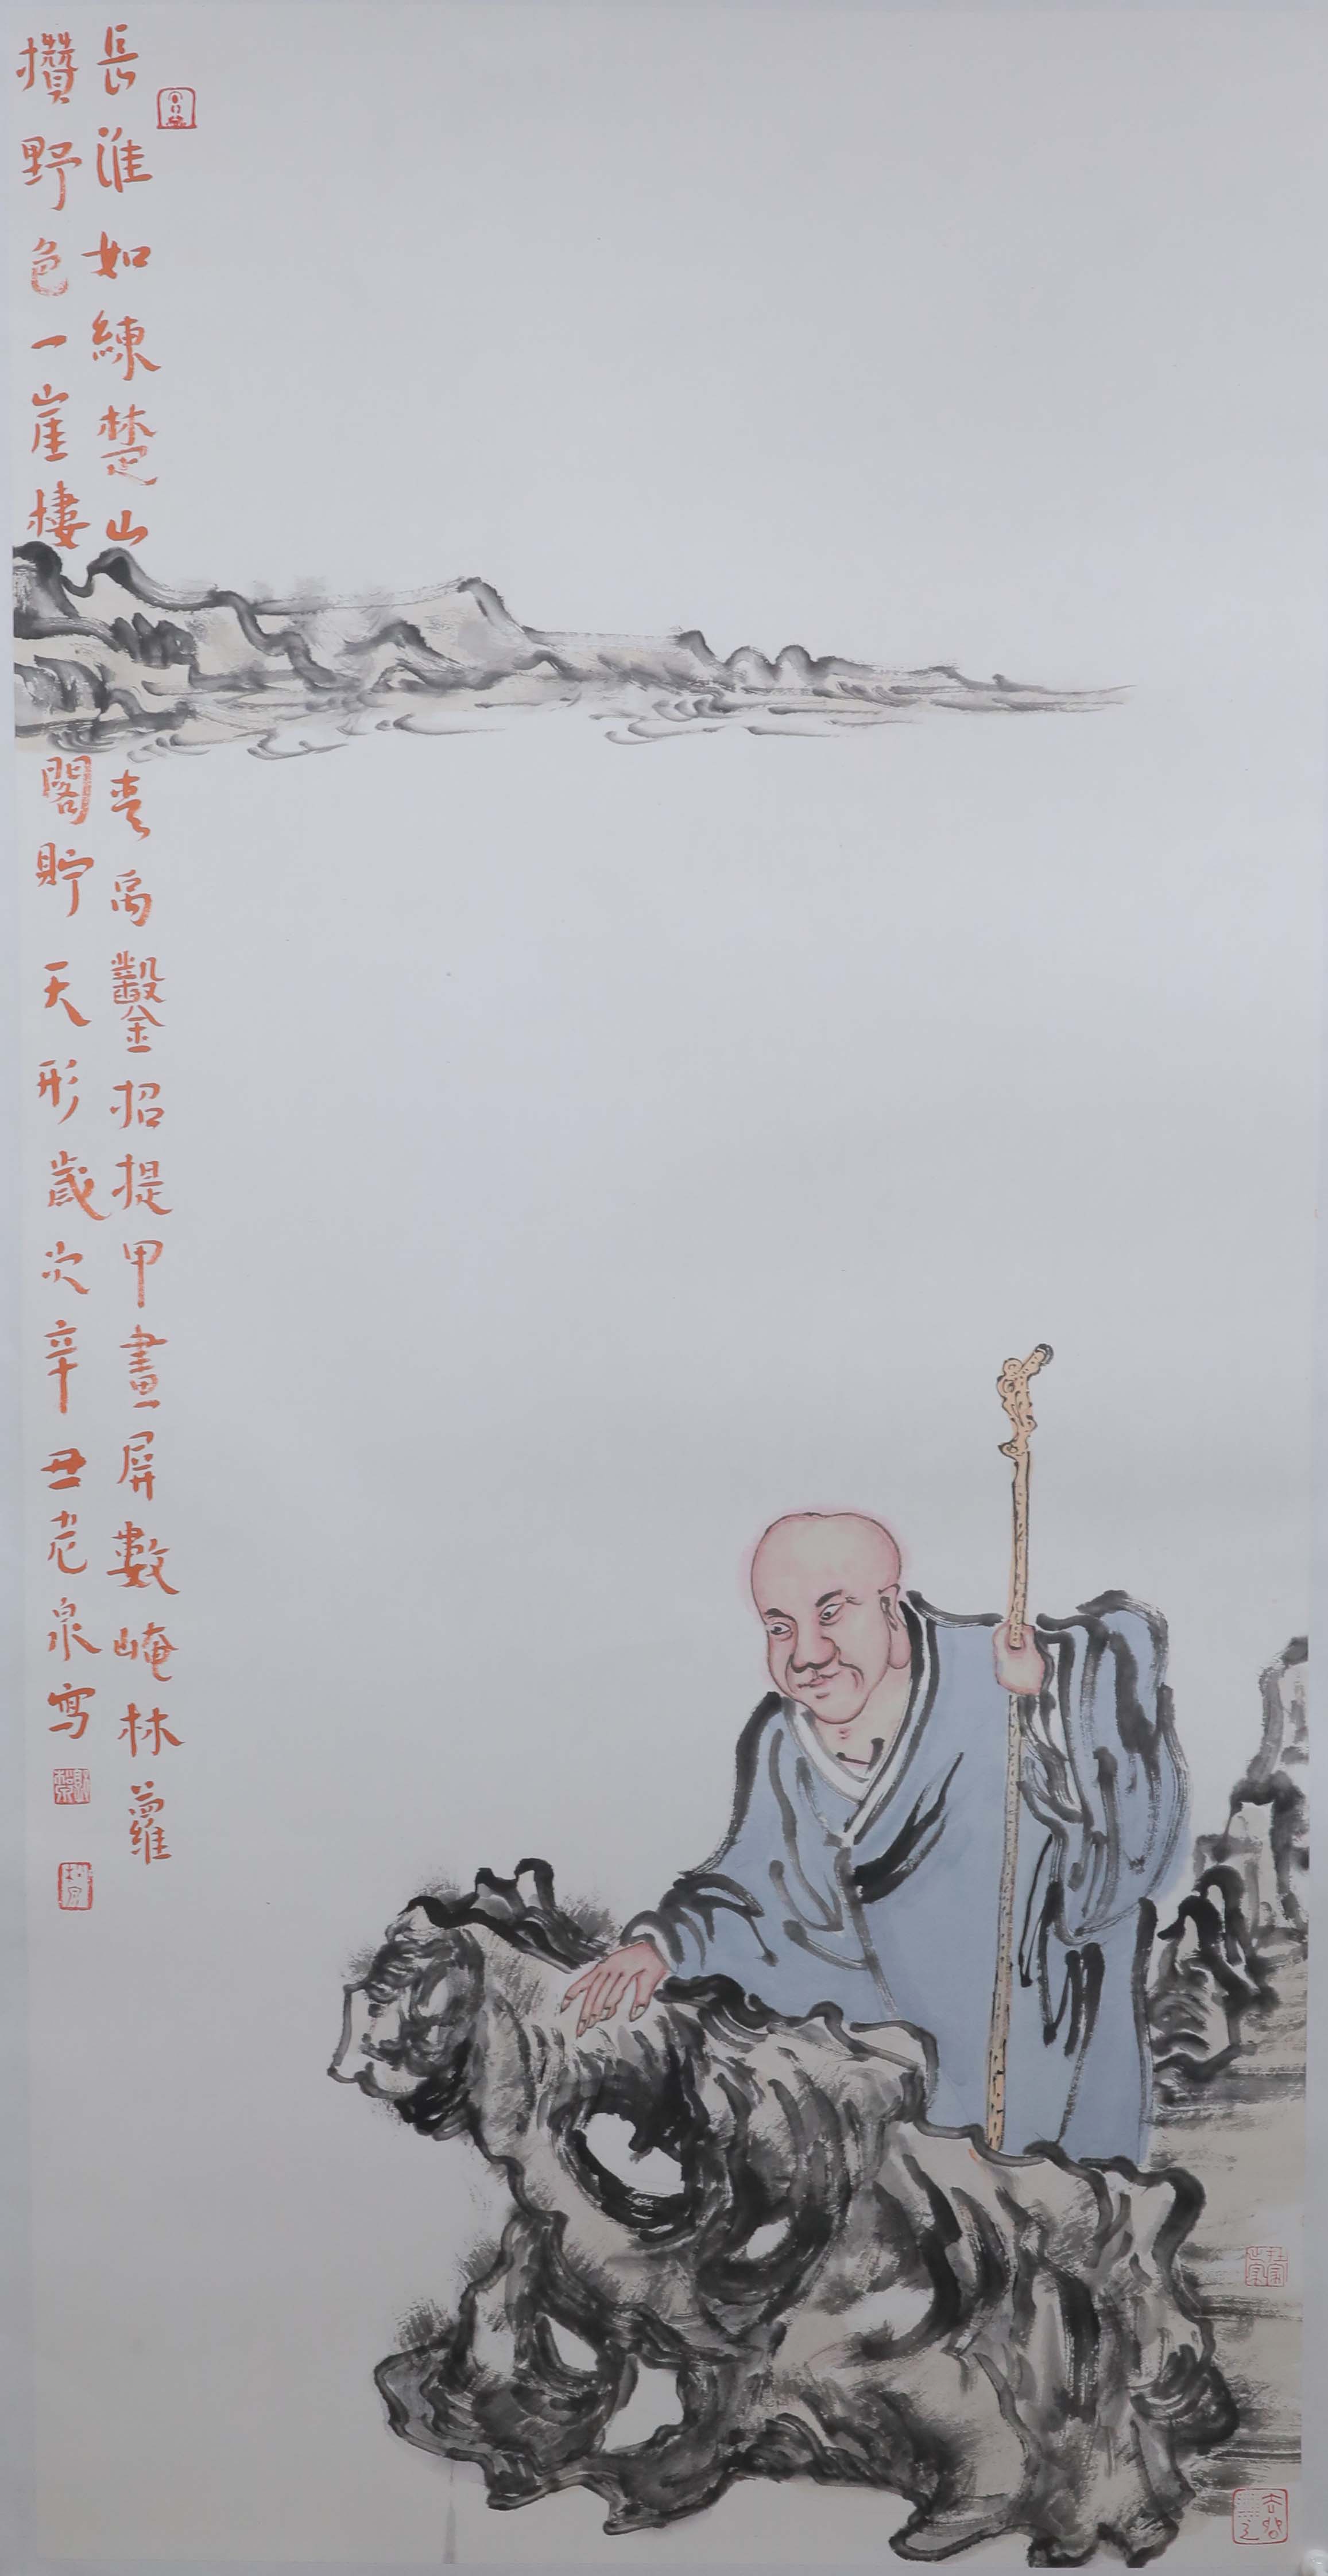 長淮如練楚山青禹鑿招提甲畫屏數崦林蘿
攢野色一崖樓閣貯天形歲次辛丑老泉寫